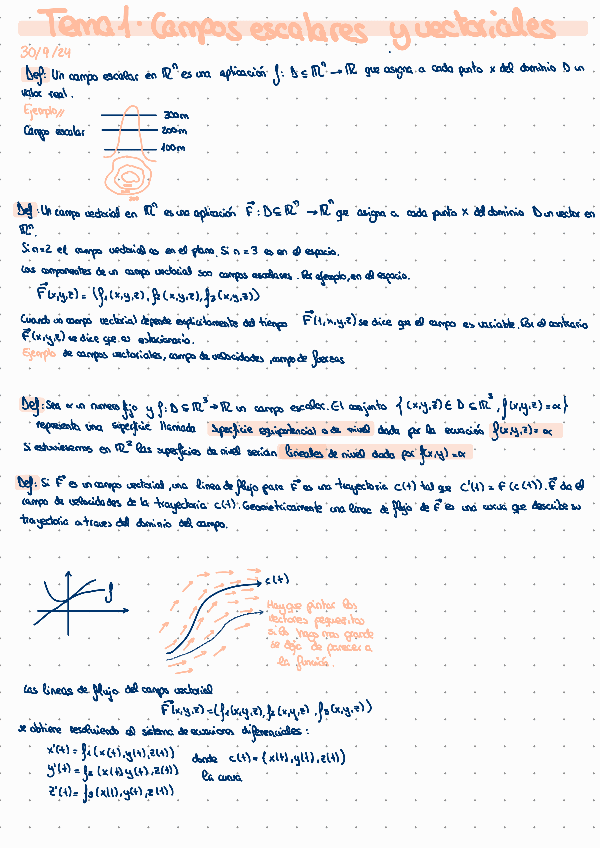 Tema 1. Campos escalares y vectoriales
30/9/24
Def: Un campo escalar en ℝⁿ es una aplicación f: D ⊆ ℝⁿ → ℝ que asigna a cada punto x del dominio D un
valor real.
Ejemplo//
300m
Campo escalar
200m
100m
Def: Un campo vectorial en ℝⁿ es una aplicación F⃗: D ⊆ ℝⁿ → ℝⁿ que asigna a cada punto x del dominio D un vector en
ℝⁿ.
Si n=2 el campo vectorial es en el plano. Si n=3 es en el espacio.
Las componentes de un campo vectorial son campos escalares. Por ejemplo, en el espacio.
F⃗(x,y,z) = (f₁(x,y,z), f₂(x,y,z), f₃(x,y,z))
Cuando un campo vectorial depende explícitamente del tiempo F⃗(t,x,y,z) se dice que el campo es variable. Por el contrario
F⃗(x,y,z) se dice que es estacionario.
Ejemplo de campos vectoriales, campo de velocidades, campo de fuerzas
Def: Sea α un numero fijo y f: D ⊆ ℝ³ → ℝ un campo escalar. El conjunto {(x,y,z) ∈ D ⊆ ℝ³, f(x,y,z) = α}
representa una superficie llamada superficie equipotencial o de nivel dada por la ecuación f(x,y,z) = α
Si estuviésemos en ℝ² las superficies de nivel serían lineales de nivel dada por f(x,y) = α
Def: Si F⃗ es un campo vectorial, una línea de flujo para F⃗ es una trayectoria c(t) tal que c'(t) = F(c(t)). F⃗ da el
campo de velocidades de la trayectoria c(t). Geométricamente una línea de flujo de F⃗ es una curva que describe su
trayectoria a traves del dominio del campo.
f
c(t)
Hay que pintar los
vectores pequeñitos
si los hago mas grande
se deja de parecer a
la función
Las líneas de flujo del campo vectorial
F⃗(x,y,z) = (f₁(x,y,z), f₂(x,y,z), f₃(x,y,z))
se obtiene resolviendo el sistema de ecuaciones diferenciales:
x'(t) = f₁(x(t),y(t),z(t)) donde c(t) = (x(t),y(t),z(t))
y'(t) = f₂(x(t),y(t),z(t)) la curva
z'(t) = f₃(x(t),y(t),z(t))